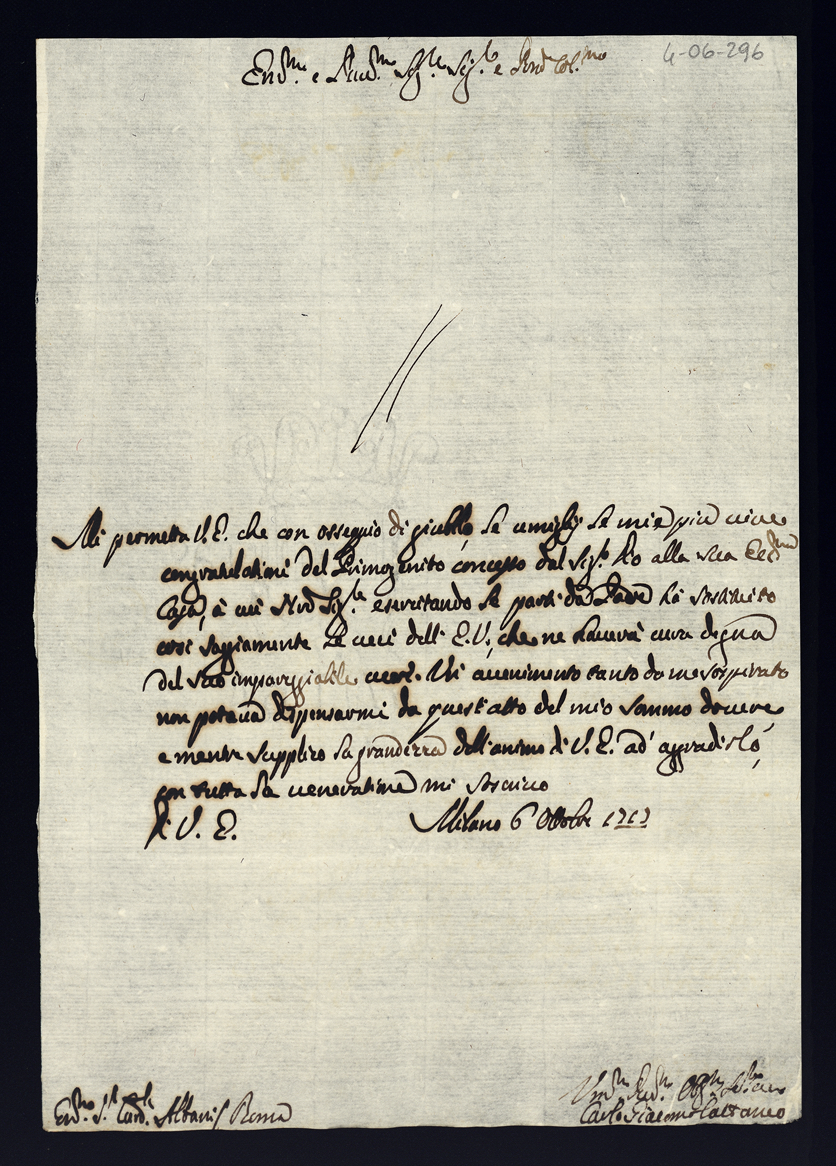 4-06-296
Em.mo e Rev.mo Sig.re Sig.r e Pron Col.mo
Mi permetta V. E. che con ossequio di giubilo le umigli le mie più vive
congratulationi del Primogenito concesso dal Sig.r Dio alla sua Ecc.ma
Casa, à cui Sig.re esercitando le parti da Padre hà sostituito
così saggiamente le veci dell' E. V., che ne haverà cura degna
del suo impareggiabile cuore. Un avvenimento tanto da me sospirato
non poteva dispensarmi da quest' atto del mio sommo dovere
e mentre supplico la grandezza dell' animo di V. E. ad' aggradirlo,
con tutta la veneratione mi soscrivo
Di V. E. Milano 6 Ottobre 1717
Em.mo S.r Card.le Albani Roma
Um.mo Dev.mo Obl.mo
Carlo Giacomo Cattaneo